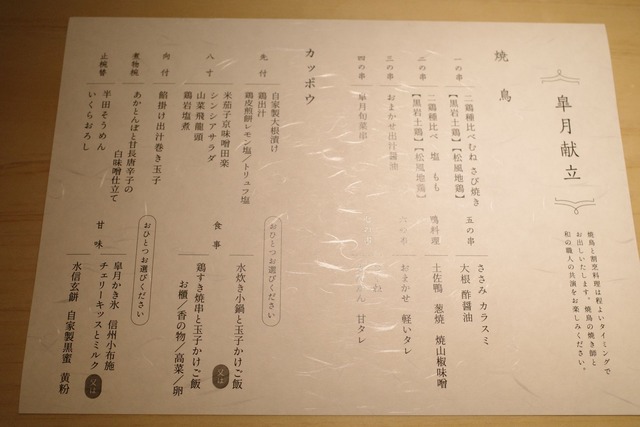 皐月献立
焼鳥と割烹料理は程よいタイミングで
お出しいたします。焼鳥の焼き師と
和の職人の共演をお楽しみください。
焼鳥
一の串
二鶏種比べむね さび焼き
【黒岩土鶏】【松風地鶏】
二の串
二鶏種比べ 塩 もも
【黒岩土鶏】【松風地鶏】
三の串
おまかせ出汁醤油
四の串
皐月旬菜串
五の串
ささみ カラスミ
大根 酢醤油
鴨料理
土佐鴨 葱焼 焼山椒味噌
六の串
おまかせ 軽いタレ
甘タレ
カッポウ
先付
自家製大根漬け
鶏出汁
鶏皮煎餅レモン塩/トリュフ塩
八寸
米茄子京味噌田楽
シンシアサラダ
山菜飛龍頭
鶏岩塩煮
向付
餡掛け出汁巻き玉子
煮物椀
あかとんぼと甘長唐辛子の
白味噌仕立て
止椀替
半田そうめん
いくらおろし
おひとつお選びください
食事
水炊き小鍋と玉子かけご飯
又は
鶏すき焼串と玉子かけご飯
お櫃/香の物/高菜/卵
おひとつお選びください
甘味
皐月かき氷 信州小布施
チェリーキッスとミルク
又は
水信玄餅 自家製黒蜜 黄粉